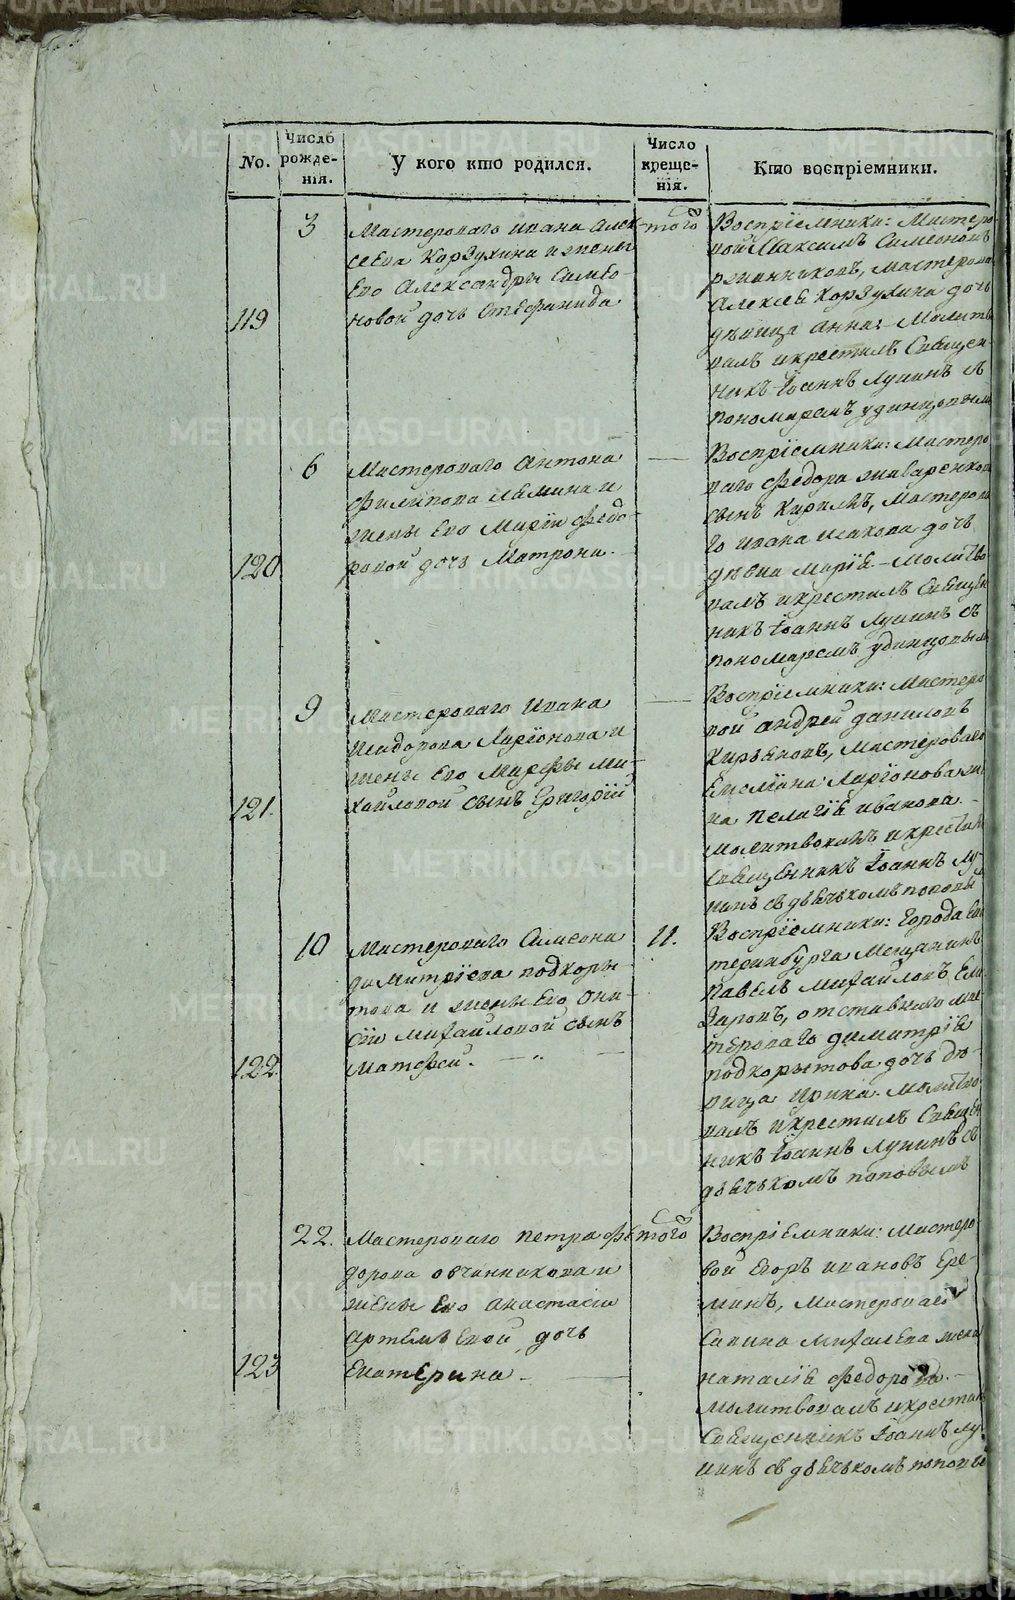 No.
Число рожде-
нія.
У кого кто родился.
Число
креще-
нія.
Кто воспріемники.
119
3
Мастероваго ивана алек-
сеева Корзухина и жены
Его Александры Симео-
новой дочь Стефанида
тогоже
Воспріемники: Мастеро-
вой Максимъ Симеоновъ
мастерова
Алексея Корзухина дочь
девица анна: Молитво-
валъ и крестилъ Священ-
никъ Іоаннъ Лунинъ съ
пономаремъ удинцовымъ
120
6
Мастероваго Антона
Филипова и
жены Его Марiи Федо-
ровой дочь Матрона.
Воспріемники: Мастеро-
ваго Федора
сынъ Кирилъ, Мастерова-
го ивана исакова дочь
девица Маріе - Молитво-
валъ и крестилъ Священ-
никъ Іоаннъ Лунинъ съ
пономаремъ удинцовымъ
121.
9
Мастероваго Ивана
Исидорова Ларіонова и
жены Его Марфы Ми-
хайловой сынъ Григорій
Воспріемники: Мастеро-
вой андрей даниловъ
Кирьековъ, Мастероваго
Ларіонова же-
на Пелагіе иванова. -
молитвовалъ и крестилъ
Священникъ Іоаннъ Лу-
нинъ съ дьячькомъ поповы
122.
10
Мастероваго Симеона
димитріева подкоры
това и жены Его Они-
сіи михайловой сынъ
матфей.
11.
Воспріемники: города Ека
теринбурга Мещанинъ
Павелъ михайловъ Ела-
заровъ, отставнаго мас
тероваго димитріе
подкорытова дочь де-
вица Ирина. молитво
валъ и крестилъ Священ
никъ Іоаннъ Лунинъ съ
дьячькомъ поповымъ
123
22.
Мастероваго петра фе
дорова овчинникова и
жены Его анастасiи
артемьевой дочь
Екатерина -
тогоже
Воспріемники: мастеро-
вой Егоръ ивановъ Ере-
минъ, мастероваго
Савина михалева жена
наталіе федорова. -
молитвовалъ и крестилъ
Священникъ Іоаннъ лу-
нинъ съ дьячькомъ поповы
METRIKI.GASO-URAL.RU